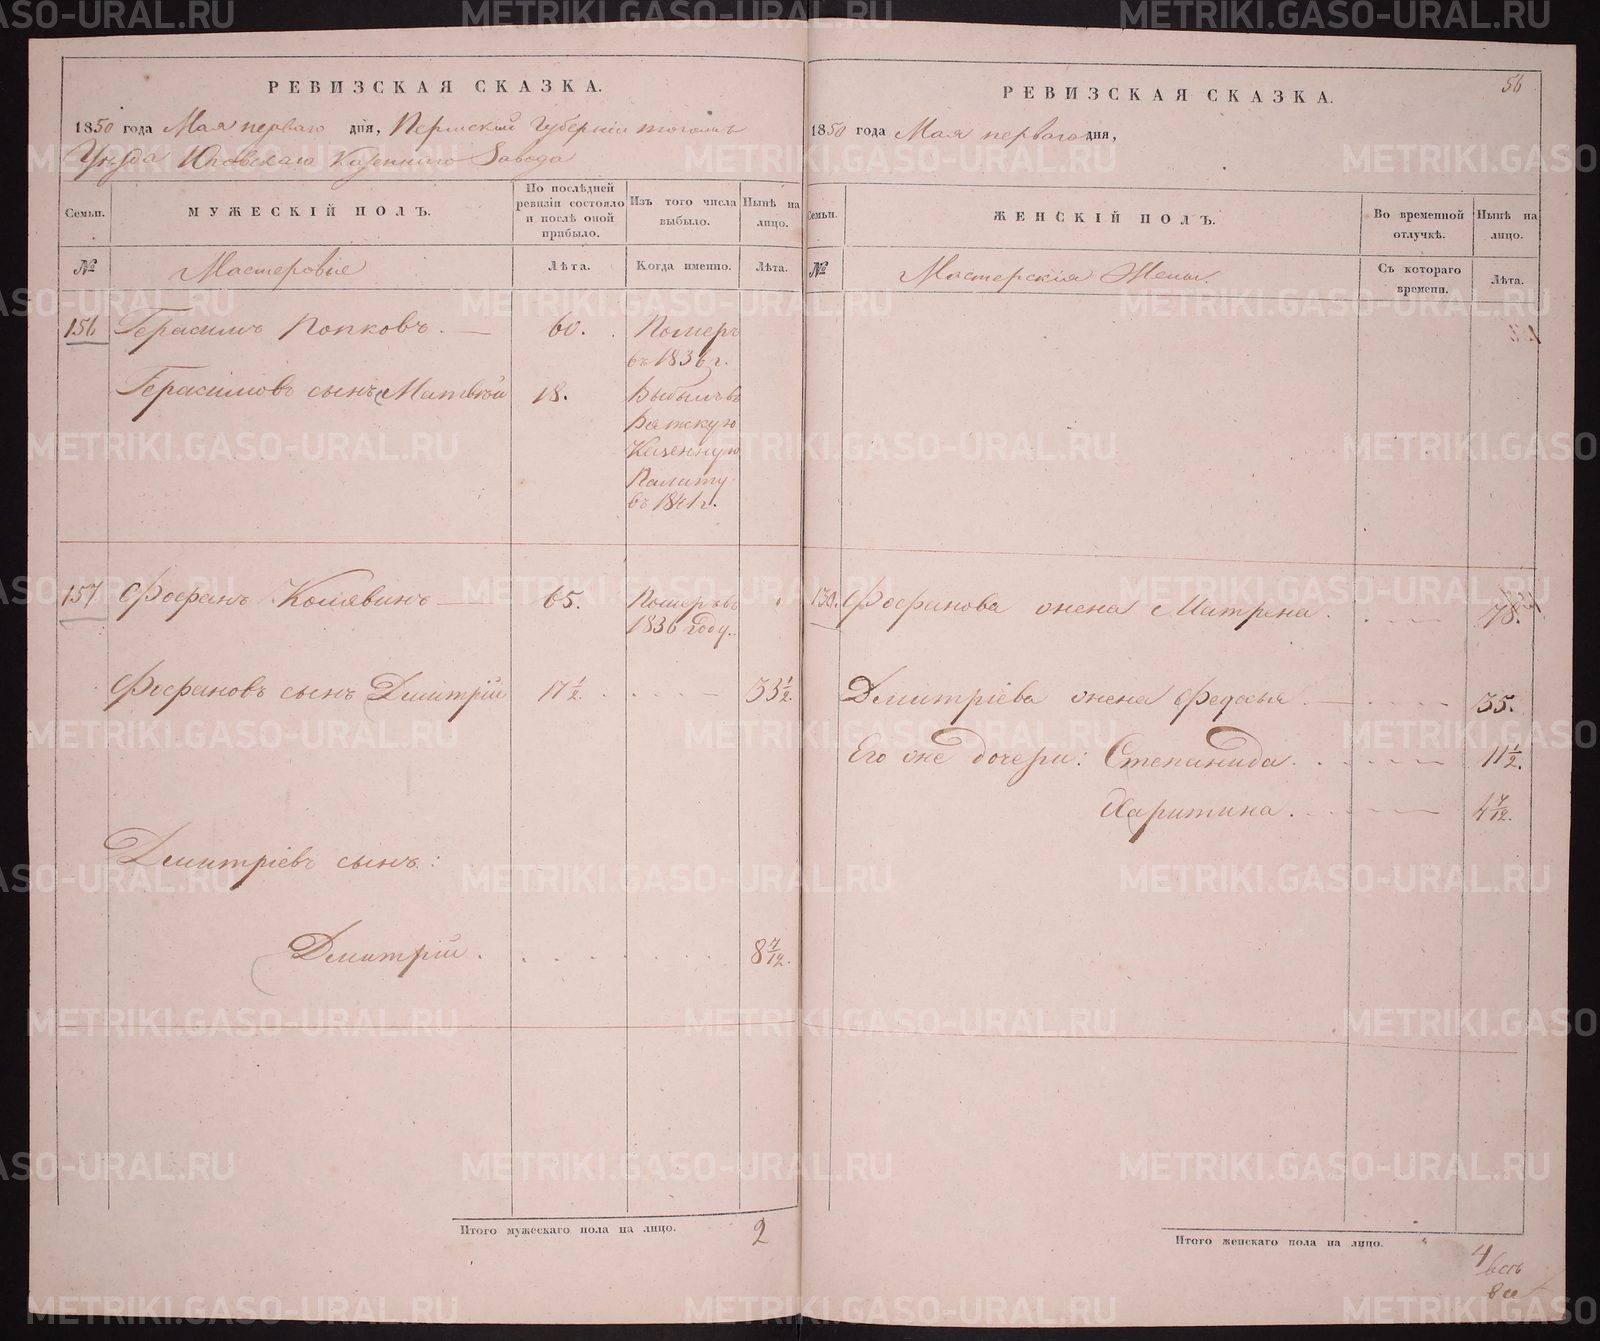 РЕВИЗСКАЯ СКАЗКА.
1850 года Мая перваго дня, Пермской Губерніи тогожъ
Уѣзда Юговскаго Казеннаго Завода
Семьи.
МУЖЕСКІЙ ПОЛЪ.
По послѣдней ревизіи состояло и послѣ оной прибыло.
Изъ того числа выбыло.
Нынѣ на лицо.
№
Мастеровые
Лѣта.
Когда именно.
Лѣта.
156 Герасимъ Попковъ. 60. Померъ
въ 1836 г.
Герасимовъ сынъ Матвѣй 18. Выбылъ въ
Вятскую
Казенную
Палату
въ 1841 г.
157 Фофанъ Колявинъ 65. Померъ въ
1836 году.
Фофановъ сынъ Дмитрій 17 1/2. 33 1/2.
Дмитріевъ сынъ:
Дмитрій. 8 7/12.
Итого мужескаго пола на лицо. 2
56
РЕВИЗСКАЯ СКАЗКА.
1850 года Мая перваго дня,
Семьи.
ЖЕНСКІЙ ПОЛЪ.
Во временной отлучкѣ.
Нынѣ на лицо.
№
Мастерскія Жены.
Съ котораго времени.
Лѣта.
130. Фофанова жена Матрена. 78.
Дмитріева жена Федосья. 35.
Его же дочери: Степанида. 11 1/2.
Харитина. 4 7/12.
Итого женскаго пола на лицо. 4
METRIKI.GASO-URAL.RU